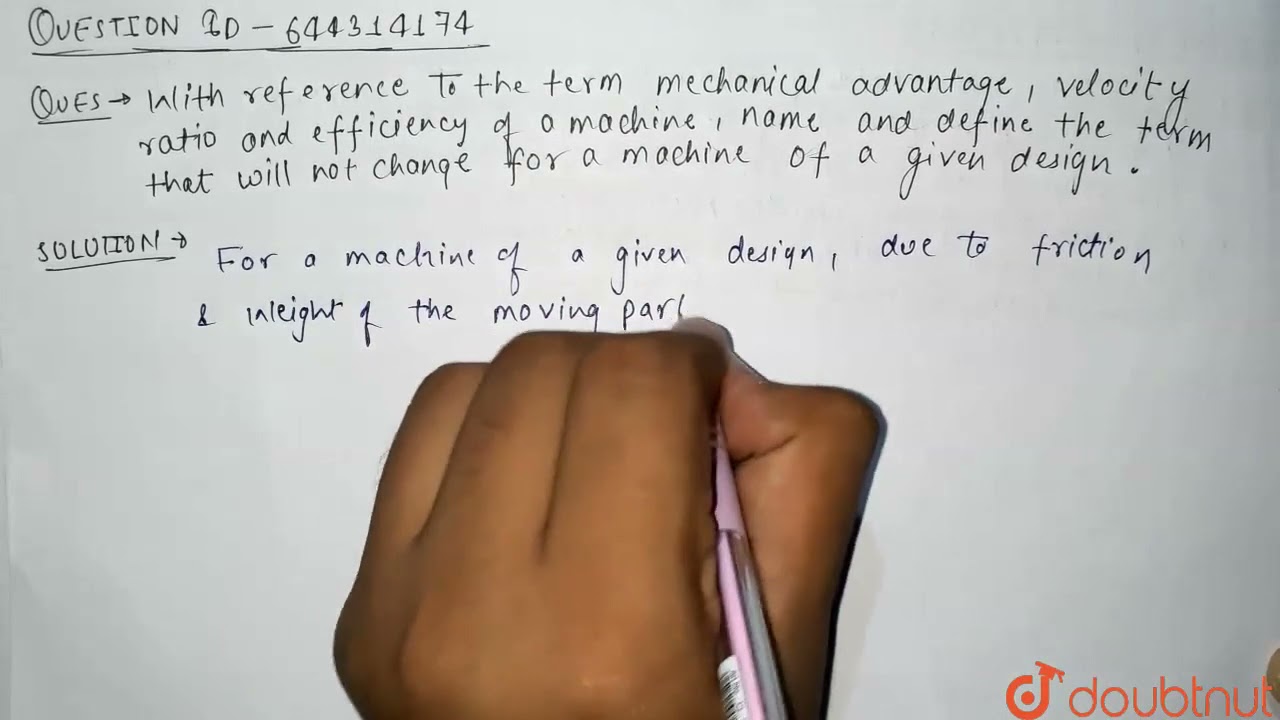 QUESTION ID - 644314174
QUES → With reference to the term mechanical advantage, velocity
ratio and efficiency of a machine, name and define the term
that will not change for a machine of a given design.
SOLUTION → For a machine of a given design, due to friction
& weight of the moving part
doubtnut